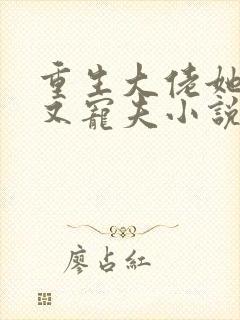 重生大佬她
又寵夫小說
廖占紅